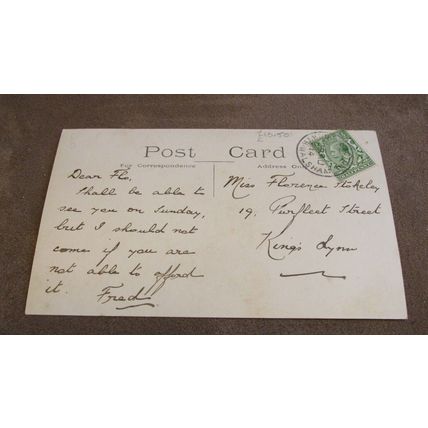 £10.50
Post Card
For Correspondence
Address On
Dear Flo,
Shall be able to
see you on Sunday,
but I should not
come if you are
not able to afford
it. Fred
Miss Florence Stokeley
19, Purfleet Street
King's Lynn